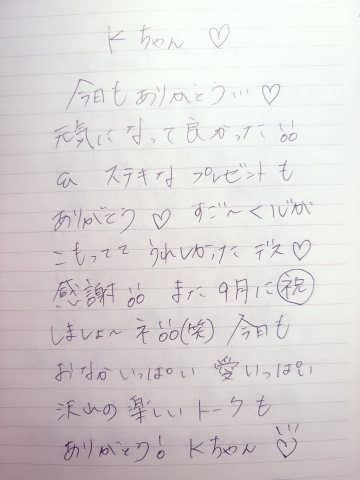 Kちゃん ♡
今日もありがとう… ♡
元気になって良かった!!
a ステキな プレゼントも
ありがとう ♡ すご〜く心が
こもってて うれしかったデス♡
感謝!! また 9月に㊗
しましょ〜 ネ!!(笑) 今日も
おなかいっぱい 愛いっぱい
沢山の楽しいトークも
ありがとう! Kちゃん ♡